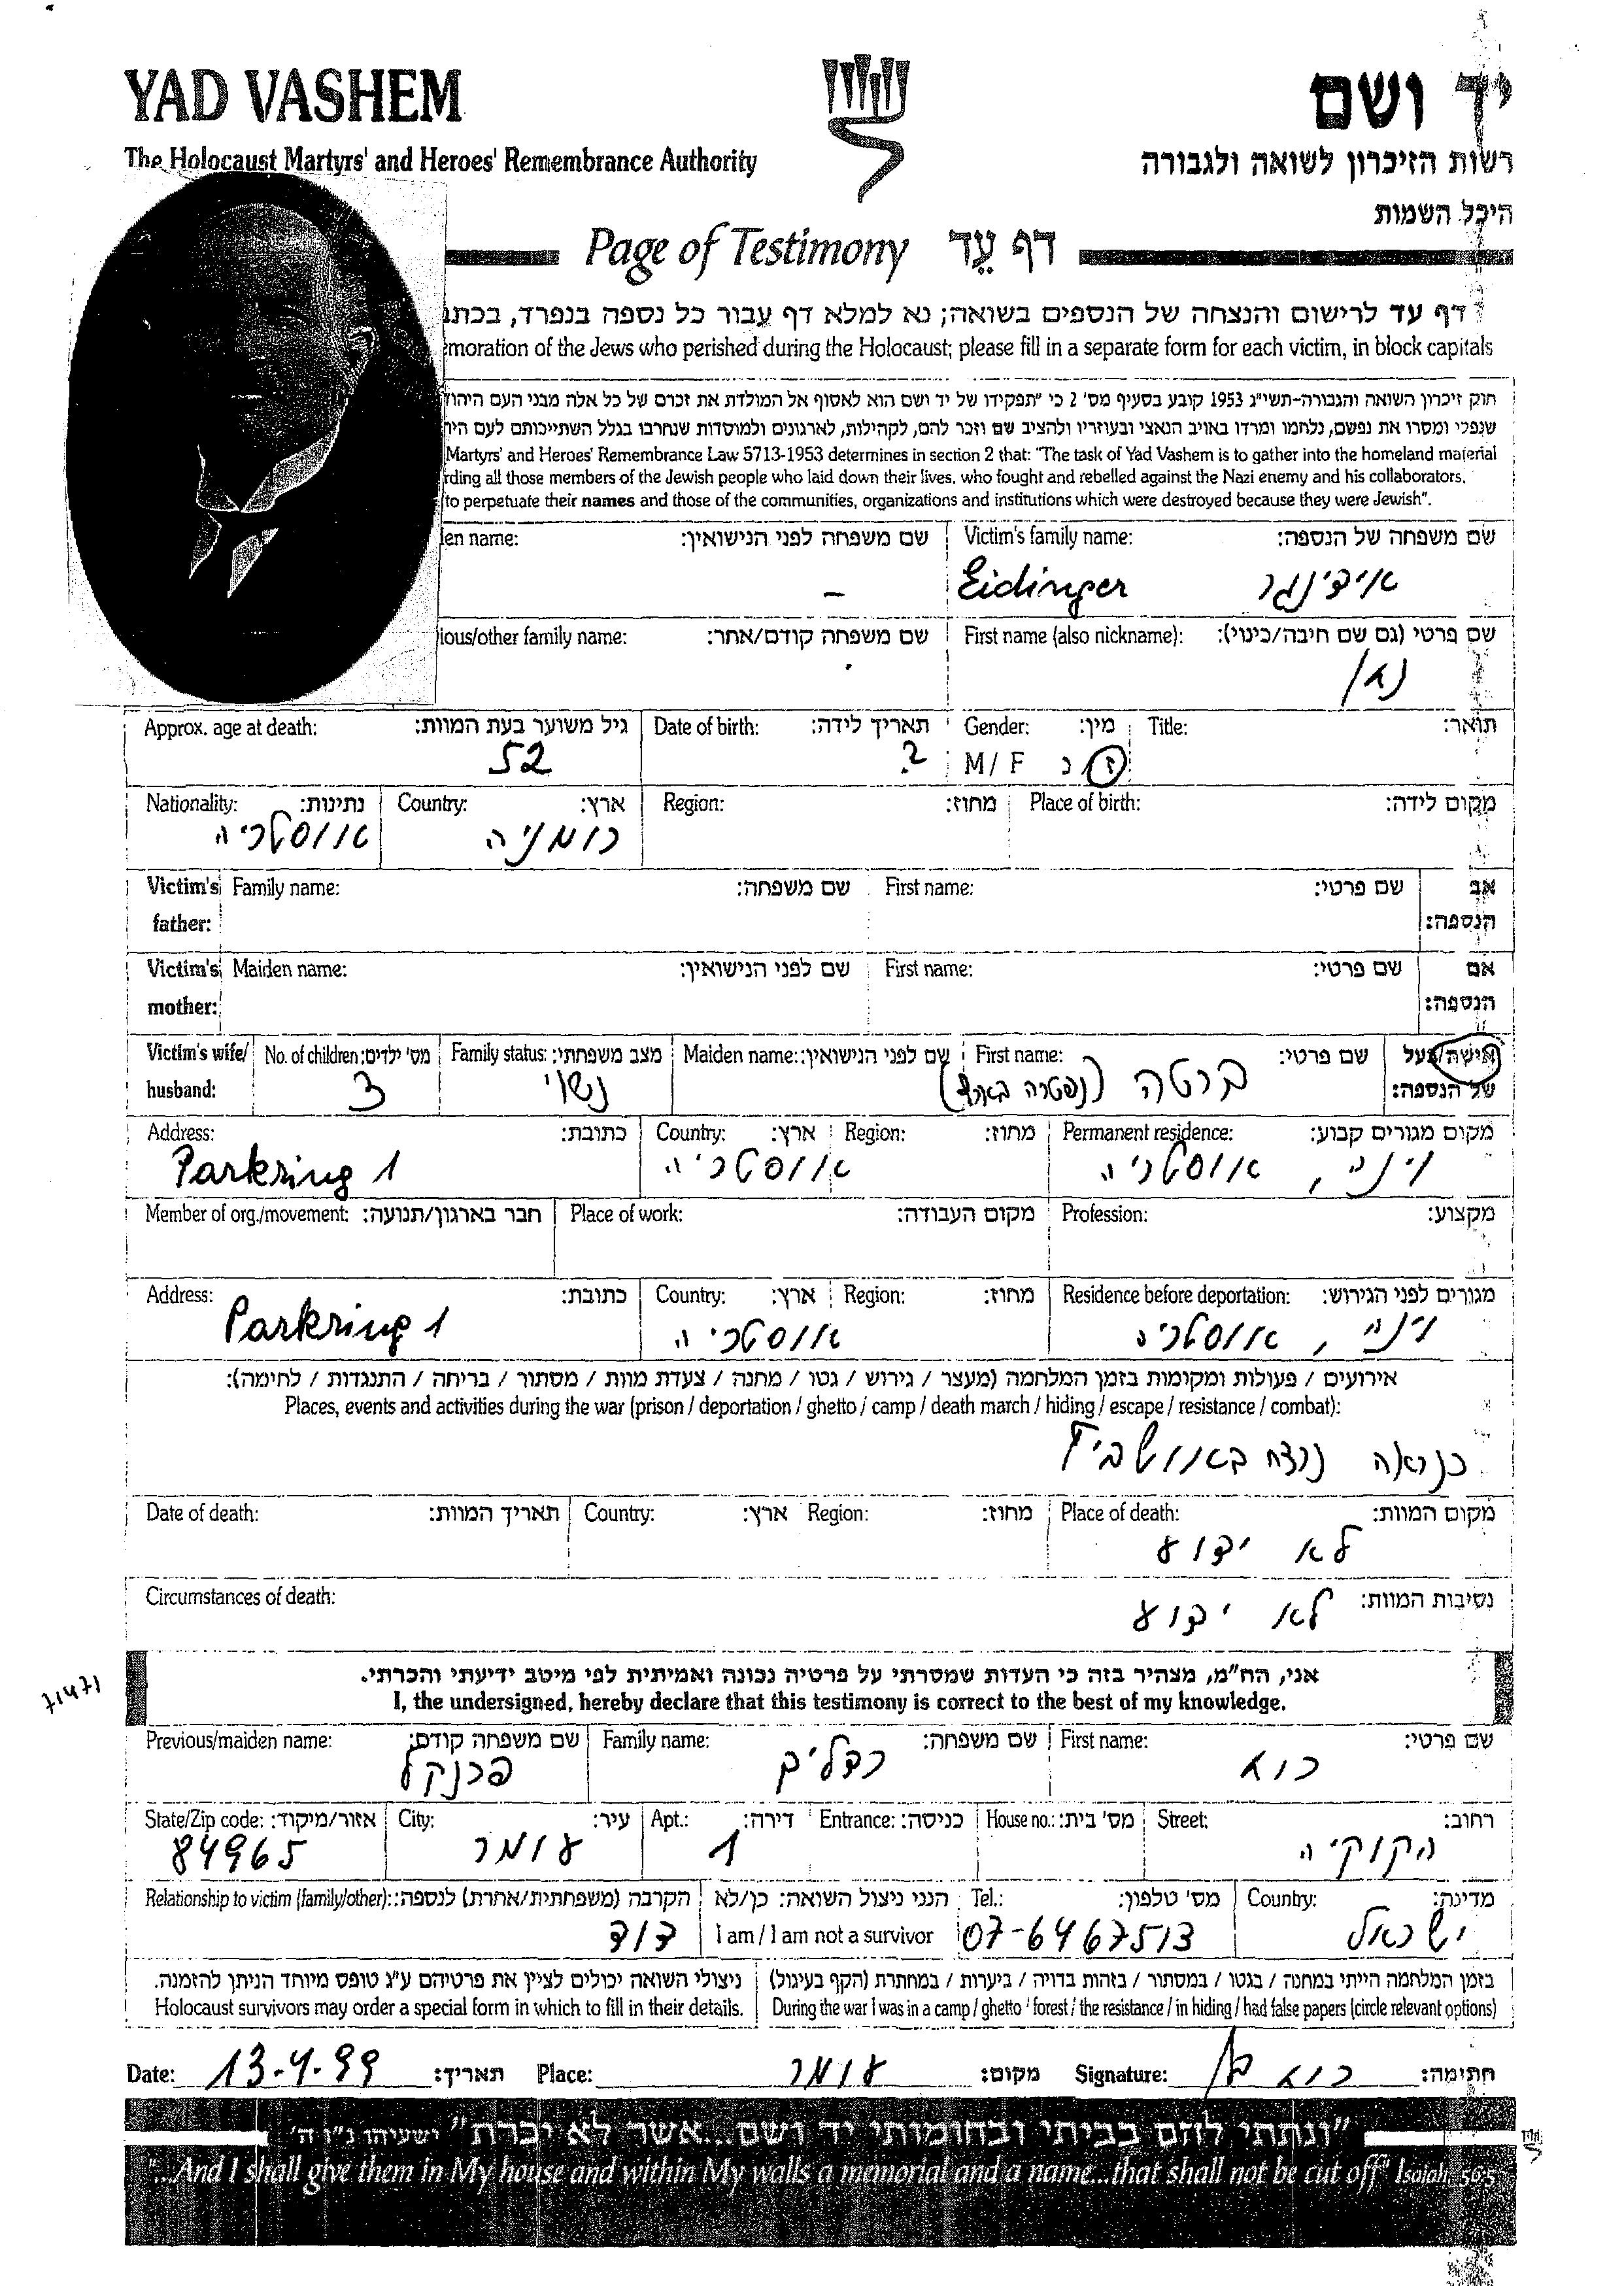 YAD VASHEM יד ושם
The Holocaust Martyrs' and Heroes' Remembrance Authority רשות הזיכרון לשואה ולגבורה
היכל השמות
Page of Testimony דף עֵד
דף עד לרישום והנצחה של הנספים בשואה; נא למלא דף עבור כל נספה בנפרד, בכתב
moration of the Jews who perished during the Holocaust; please fill in a separate form for each victim, in block capitals
חוק זיכרון השואה והגבורה-תשי"ג 1953 קובע בסעיף מס' 2 כי "תפקידו של יד ושם הוא לאסוף אל המולדת את זכרם של כל אלה מבני העם היהוד
שנפלו ומסרו את נפשם, נלחמו ומרדו באויב הנאצי ובעוזריו ולהציב שם וזכר להם, לקהילות, לארגונים ולמוסדות שנחרבו בגלל השתייכותם לעם היה
Martyrs' and Heroes' Remembrance Law 5713-1953 determines in section 2 that: "The task of Yad Vashem is to gather into the homeland material
rding all those members of the Jewish people who laid down their lives, who fought and rebelled against the Nazi enemy and his collaborators,
to perpetuate their names and those of the communities, organizations and institutions which were destroyed because they were Jewish".
en name: שם משפחה לפני הנישואין: Victim's family name: שם משפחה של הנספה:
– Eidinger אידינגר
ious/other family name: שם משפחה קודם/אחר: First name (also nickname): שם פרטי (גם שם חיבה/כינוי):
Approx. age at death: גיל משוער בעת המוות: Date of birth: תאריך לידה: Gender: מין: Title: תואר:
52 ? M / F ז נ
Nationality: נתינות: Country: ארץ: Region: מחוז: Place of birth: מקום לידה:
אוסטריה רומניה
Victim's father: Family name: שם משפחה: First name: שם פרטי: אב הנספה:
Victim's mother: Maiden name: שם לפני הנישואין: First name: שם פרטי: אם הנספה:
Victim's wife/ husband: No. of children: מס' ילדים: Family status: מצב משפחתי: Maiden name: שם לפני הנישואין: First name: שם פרטי: אישה/בעל של הנספה:
3 נשוי ברטה (נפטרה בארץ)
Address: כתובת: Country: ארץ: Region: מחוז: Permanent residence: מקום מגורים קבוע:
Parkring 1 אוסטריה וינה, אוסטריה
Member of org./movement: חבר בארגון/תנועה: Place of work: מקום העבודה: Profession: מקצוע:
Address: כתובת: Country: ארץ: Region: מחוז: Residence before deportation: מגורים לפני הגירוש:
Parkring 1 אוסטריה וינה, אוסטריה
אירועים / פעולות ומקומות בזמן המלחמה (מעצר / גירוש / גטו / מחנה / צעדת מוות / מסתור / בריחה / התנגדות / לחימה):
Places, events and activities during the war (prison / deportation / ghetto / camp / death march / hiding / escape / resistance / combat):
כנראה נרצח באושביץ
Date of death: תאריך המוות: Country: ארץ: Region: מחוז: Place of death: מקום המוות:
לא ידוע
Circumstances of death: נסיבות המוות:
לא ידוע
71471
אני, הח"מ, מצהיר בזה כי העדות שמסרתי על פרטיה נכונה ואמיתית לפי מיטב ידיעתי והכרתי.
I, the undersigned, hereby declare that this testimony is correct to the best of my knowledge.
Previous/maiden name: שם משפחה קודם: Family name: שם משפחה: First name: שם פרטי:
פרנקל
State/Zip code: אזור/מיקוד: City: עיר: Apt.: דירה: Entrance: כניסה: House no.: מס' בית: Street: רחוב:
84965 עומר 1 הקוקיה
Relationship to victim (family/other): הקרבה (משפחתית/אחרת) לנספה: הנני ניצול השואה: כן/לא Tel.: מס' טלפון: Country: מדינה:
דוד I am / I am not a survivor 07-6467513 ישראל
בזמן המלחמה הייתי במחנה / בגטו / במסתור / בזהות בדויה / ביערות / במחתרת (הקף בעיגול) ניצולי השואה יכולים לציין את פרטיהם ע"ג טופס מיוחד הניתן להזמנה.
Holocaust survivors may order a special form in which to fill in their details. During the war I was in a camp / ghetto / forest / the resistance / in hiding / had false papers (circle relevant options)
Date: 13.4.99 תאריך: Place: עומר מקום: Signature: חתימה:
"ונתתי להם בביתי ובחומותי יד ושם...אשר לא יכרת" ישעיהו נ"ו ה'
"...And I shall give them in My house and within My walls a memorial and a name...that shall not be cut off" Isaiah 56:5